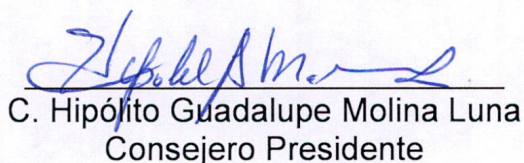 C. Hipólito Guadalupe Molina Luna
Consejero Presidente